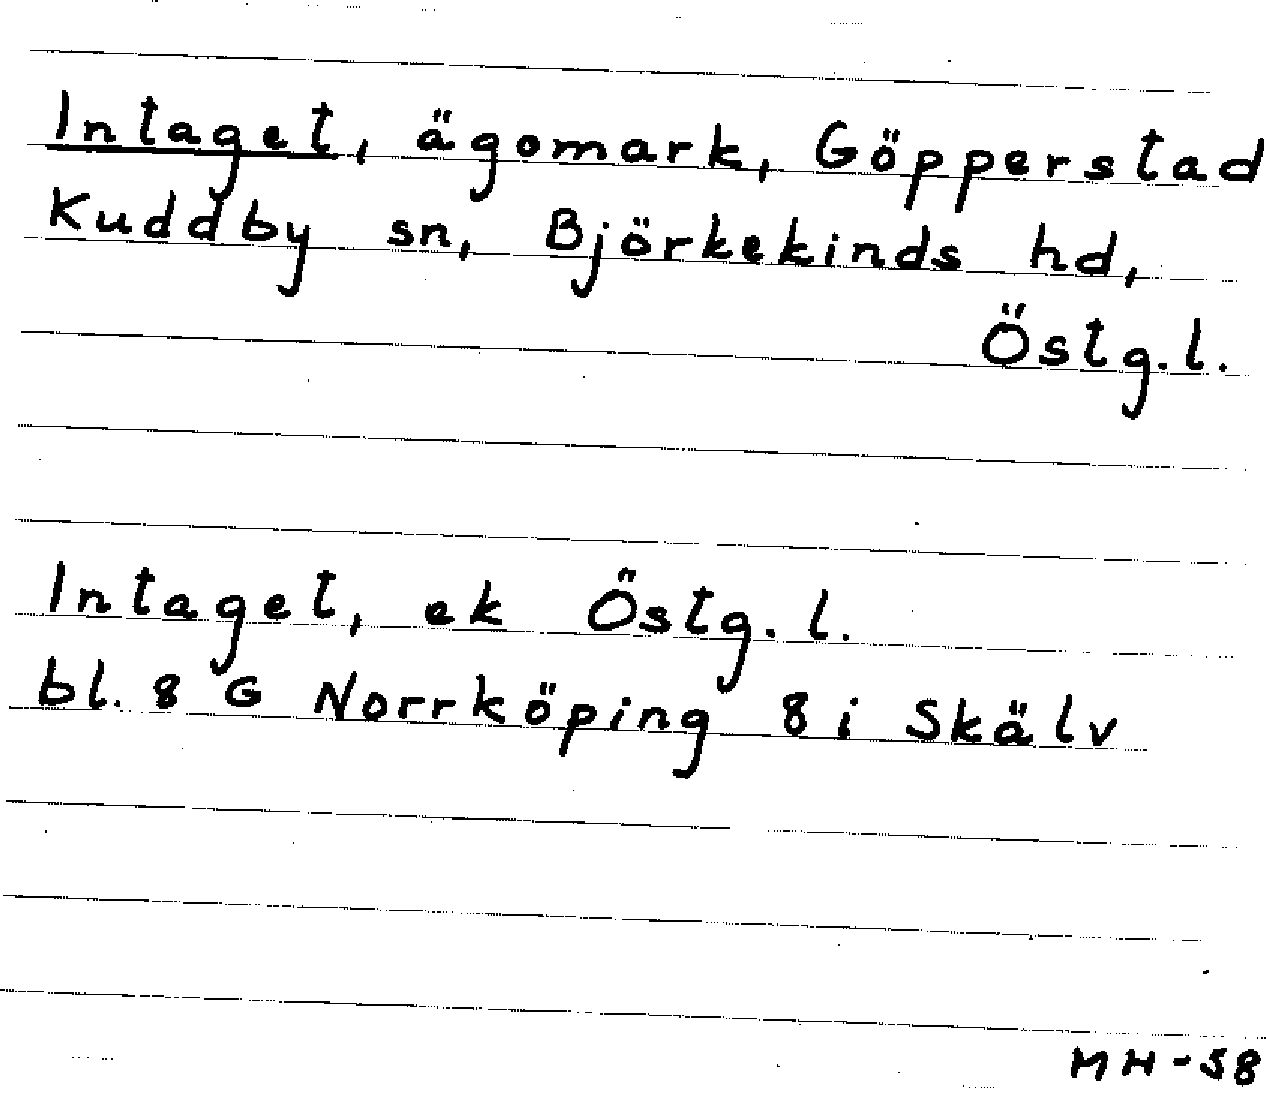 Intaget, ägomark, Göpperstad
Kuddby sn, Björkekinds hd,
Östg.l.
Intaget, ek Östg.l.
bl. 8 G Norrköping 8 i Skälv
MH-58